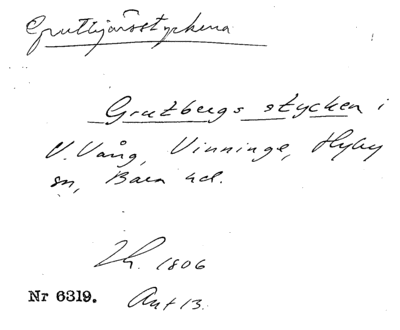 Gruttjärsstyckena
Grutbergs stycken i
V. Vång, Vinninge, Hyby
sn, Bara hd.
Lh. 1806
Nr 6319. Akt 13.